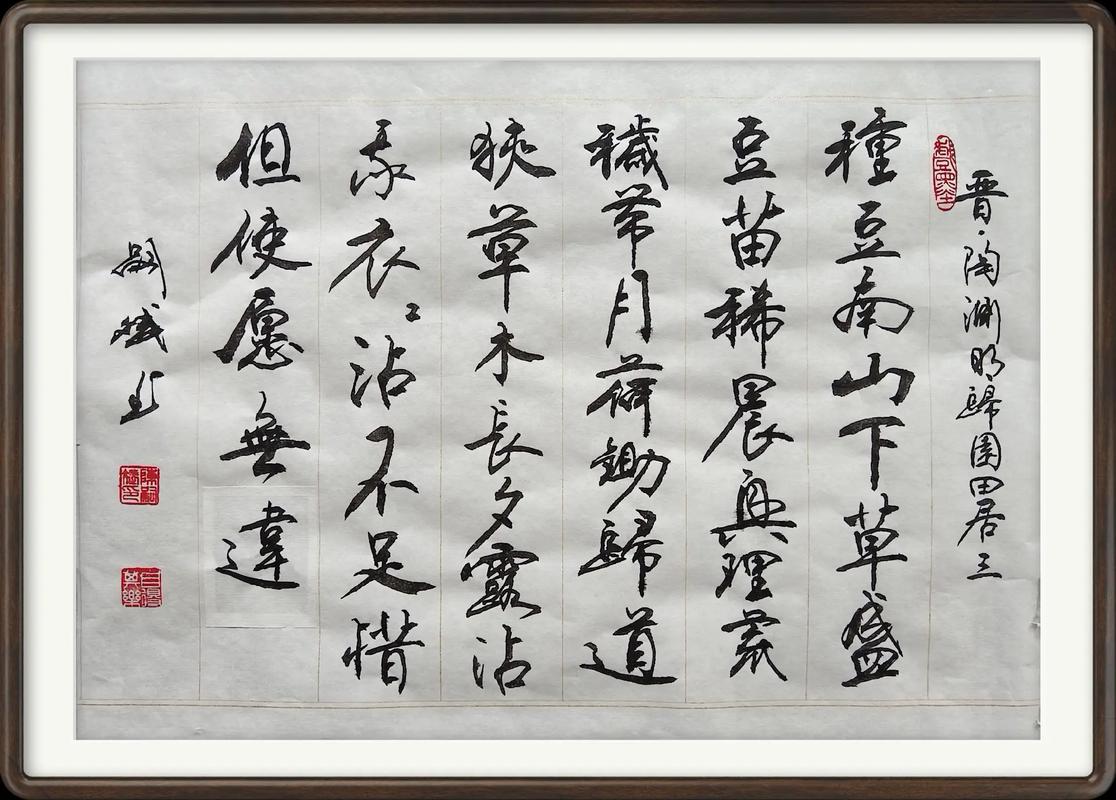 晋·陶淵明歸園田居三
種豆南山下草盛
豆苗稀晨興理荒
穢带月荷鋤歸道
狹草木長夕露沾
我衣々沾不足惜
但使愿無違
嗣斌书
自得其樂